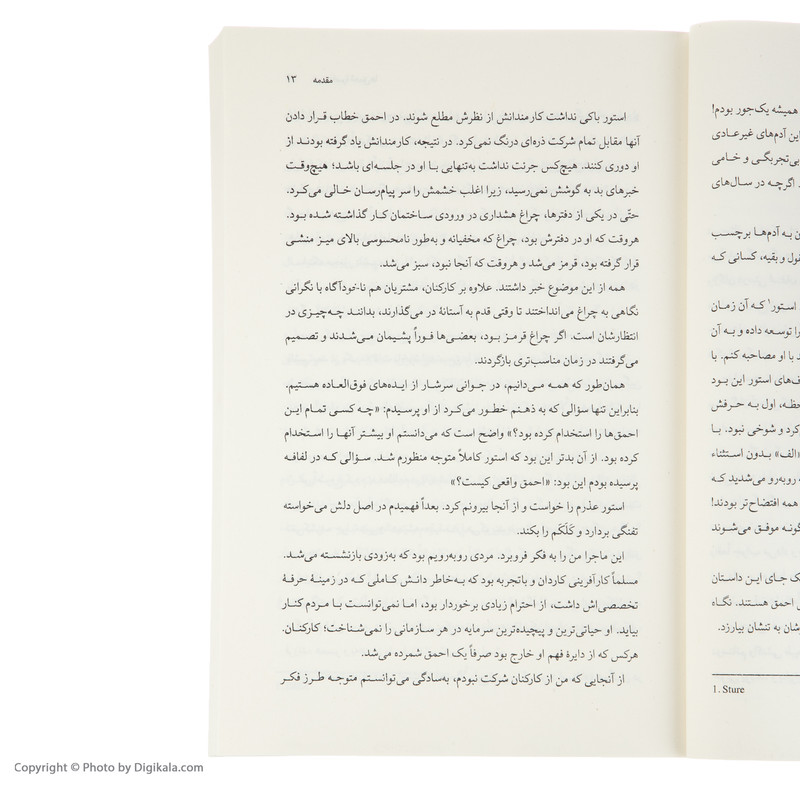 همیشه یک‌جور بودم!
این آدم‌های غیرعادی
بی‌تجربگی و خامی
اگرچه در سال‌های
به آدم‌ها برچسب
بقیه، کسانی که
استور۱ که آن زمان
را توسعه داده و به آن
با او مصاحبه کنم. با
استور این بود
اول به حرفش
کرد و شوخی نبود. با
«الف» بدون استثناء
روبه‌رو می‌شدید که
همه افتضاح‌تر بودند!
موفق می‌شوند
جای این داستان
احمق هستند. نگاه
به تنشان بیارزد.
1. Sture
مقدمه ۱۳
استور باکی نداشت کارمندانش از نظرش مطلع شوند. در احمق خطاب قرار دادن
آنها مقابل تمام شرکت ذره‌ای درنگ نمی‌کرد. در نتیجه، کارمندانش یاد گرفته بودند از
او دوری کنند. هیچ‌کس جرئت نداشت به‌تنهایی با او در جلسه‌ای باشد؛ هیچ‌وقت
خبرهای بد به گوشش نمی‌رسید، زیرا اغلب خشمش را سر پیام‌رسان خالی می‌کرد.
حتّی در یکی از دفترها، چراغ هشداری در ورودی ساختمان کار گذاشته شده بود.
هروقت که او در دفترش بود، چراغ که مخفیانه و به‌طور نامحسوسی بالای میز منشی
قرار گرفته بود، قرمز می‌شد و هروقت که آنجا نبود، سبز می‌شد.
همه از این موضوع خبر داشتند. علاوه بر کارکنان، مشتریان هم ناخودآگاه با نگرانی
نگاهی به چراغ می‌انداختند تا وقتی قدم به آستانهٔ در می‌گذارند، بدانند چه‌چیزی در
انتظارشان است. اگر چراغ قرمز بود، بعضی‌ها فوراً پشیمان می‌شدند و تصمیم
می‌گرفتند در زمان مناسب‌تری بازگردند.
همان‌طور که همه می‌دانیم، در جوانی سرشار از ایده‌های فوق‌العاده هستیم.
بنابراین تنها سؤالی که به ذهنم خطور می‌کرد از او پرسیدم: «چه کسی تمام این
احمق‌ها را استخدام کرده بود؟» واضح است که می‌دانستم او بیشتر آنها را استخدام
کرده بود. از آن بدتر این بود که استور کاملاً متوجه منظورم شد. سؤالی که در لفافه
پرسیده بودم این بود: «احمق واقعی کیست؟»
استور عذرم را خواست و از آنجا بیرونم کرد. بعداً فهمیدم در اصل دلش می‌خواسته
تفنگی بردارد و کَلَکَم را بکند.
این ماجرا من را به فکر فروبرد. مردی روبه‌رویم بود که به‌زودی بازنشسته می‌شد.
مسلماً کارآفرینی کاردان و باتجربه بود که به‌خاطر دانش کاملی که در زمینهٔ حرفهٔ
تخصصی‌اش داشت، از احترام زیادی برخوردار بود، اما نمی‌توانست با مردم کنار
بیاید. او حیاتی‌ترین و پیچیده‌ترین سرمایه در هر سازمانی را نمی‌شناخت؛ کارکنان.
هرکس که از دایرهٔ فهم او خارج بود صرفاً یک احمق شمرده می‌شد.
از آنجایی که من از کارکنان شرکت نبودم، به‌سادگی می‌توانستم متوجه طرز فکر
Copyright © Photo by Digikala.com